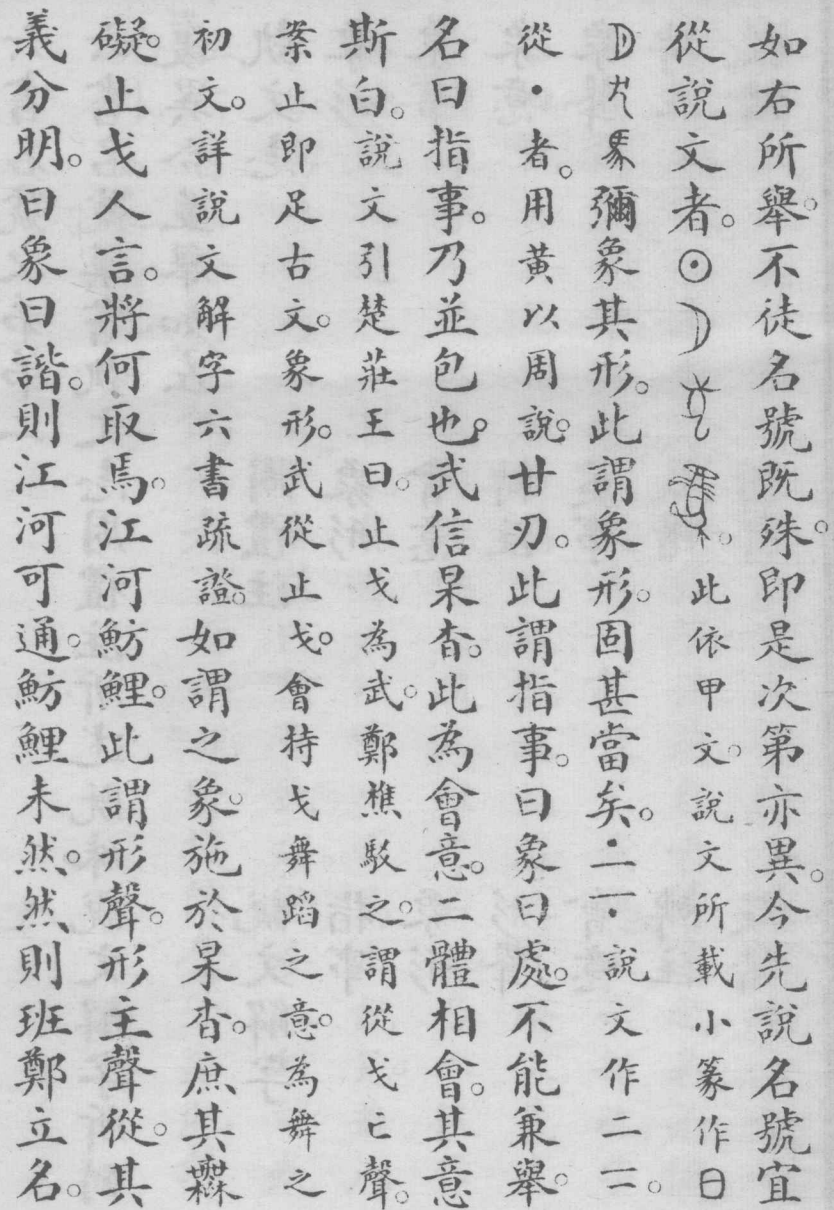 如右所舉。不徒名號既殊。即是次第亦異。今先說名號宜
從說文者。⊙此依甲文。說文所載小篆作日
彌象其形。此謂象形。固甚當矣。說文作二
從・者。用黃以周說。甘刃。此謂指事。曰象曰處。不能兼舉。
名曰指事。乃並包也。武信杲杳。此為會意。二體相會。其意
斯白。說文引楚莊王曰。止戈為武。鄭樵駁之。謂從戈亡聲。
案止即足古文。象形。武從止戈。會持戈舞蹈之意。為舞之
初文。詳說文解字六書疏證。如謂之象。施於杲杳。庶其無
礙。止戈人言。將何取焉。江河魴鯉。此謂形聲。形主聲從。其
義分明。曰象曰諧。則江河可通。魴鯉未然。然則班鄭立名。